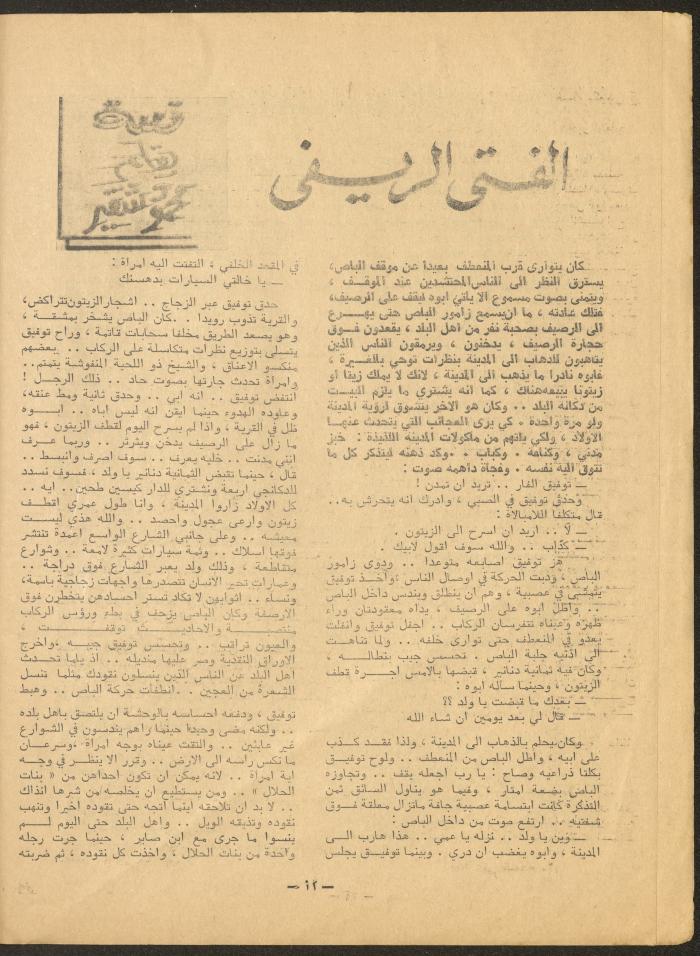 الفتى الريفى
قصة
بقلم
محمود شقير
كان يتوارى قرب المنعطف بعيدا عن موقف الباص،
يسترق النظر الى الناس المحتشدين عند الموقف ،
ويتمنى بصوت مسموع الا ياتي ابوه ليقف على الرصيف،
فتلك عادته ، ما ان يسمع زامور الباص حتى يهـــرع
الى الرصيف بصحبة نفر من اهل البلد ، يقعدون فــوق
حجارة الرصيف ، يدخنون ، ويرمقون الناس الذين
يتاهبون للذهاب الى المدينة بنظرات توحي بالغــيرة ،
فابوه نادرا ما يذهب الى المدينة ، لانه لا يملك زيتا او
زيتونا يبيعه هناك ، كما انه يشتري ما يلزم البيــت
من دكانة البلد .. وكان هو الآخر يتشوق لرؤية المدينة
ولو مرة واحدة ، كي يرى العجائب التي يتحدث عنهــا
الاولاد ، ولكي يلتهم من ماكولات المدينة اللذيذة : خبز
مدني ، وكنافة ، وكباب .. وكد ذهنه ليتذكر كل ما
تتوق اليه نفسه ، وفجأة داهمه صوت :
ــ توفيق الفار .. تريد ان تمدن !
وحدق توفيق في الصبي ، وادرك انه يتحرش به ..
قال متكلفا اللامبالاة :
ــ لا .. اريد ان اسرح الى الزيتون .
ــ كذاب .. والله سوف اقول لابيك .
هز توفيق اصابعه متوعدا .. ودوى زامور
الباص ، ودبت الحركة في اوصال الناس ، واخـذ توفيق
يتمشى في عصبية ، وهم ان ينطلق ويندس داخل الباص
.. واطل ابوه على الرصيف ، يداه معقودتان وراء
ظهره وعيناه تتفرسان الركاب .. اجفل توفيق وانفلت
يعدو في المنعطف حتى توارى خلفه .. ولما تناهــت
الى اذنيه جلبة الباص . تحسس جيب بنطالـــه ،
وكان فيه ثمانية دنانير ، قبضها بالامس اجــرة قطف
الزيتون ، وحينما ساله ابوه :
ــ بعدك ما قبضت يا ولد ؟؟
ــ قال لي بعد يومين ان شاء الله
وكان يحلم بالذهاب الى المدينة ، ولذا فقــد كــذب
على ابيه ، واطل الباص من المنعطف .. ولوح توفيــق
بكلتا ذراعيه وصاح : يا رب اجعله يقف .. وتجاوزه
الباص بضعة امتار ، وفيما هو يناول السائق ثمن
التذكرة كانت ابتسامة عصبية جافة ماتزال معلقة فــوق
شفتيه .. ارتفع صوت من داخل الباص :
ــ وين يا ولد .. نزله يا عمي .. هذا هارب الــى
المدينة ، وابوه يغضب ان دري . وبينما توفيــق يجلس
في المقعد الخلفي ، التفتت اليه امراة :
ــ يا خالتي السيارات بدهسنك
حدق توفيق عبر الزجاج .. اشجار الزيتون تتراكض،
والقرية تذوب رويدا .. كان الباص يشخر بمشقـة ،
وهو يصعد الطريق مخلفا سحابات قاتمة ، وراح توفيق
يتسلى بتوزيع نظرات متكاسلة على الركاب .. بعضهم
منكسو الاعناق ، والشيخ ذو اللحية المنفوشة يتمتم..
وامراة تحدث جارتها بصوت حاد .. ذلك الرجـل !
انتفض توفيق .. انه ابي .. وحدق ثانية ومط عنقه،
وعاوده الهدوء حينما ايقن انه ليس اباه .. ابـــوه
ظل في القرية ، واذا لم يسرح اليوم لقطف الزيتون ، فهو
ما زال على الرصيف يدخن ويثرثر .. وربما عــرف
انني مدنت .. خليه يعرف .. سوف اصرف وانبسط ..
قال ، حينما تقبض الثمانية دنانير يا ولد ، فسوف نسدد
للدكانجي اربعة ونشتري للدار كيسين طحين.. ايه ..
كل الاولاد زاروا المدينة ، وانا طول عمري اقطــف
زيتون وارعى عجول واحصد .. والله هذي ليســت
معيشه .. وعلى جانبي الشارع الواسع اعمدة تنتشر
فوقها اسلاك .. وثمة سيارات كثيرة لامعة .. وشوارع
متقاطعة ، وذلك ولد يعبر الشارع فوق دراجة ..
وعمارات تحير الانسان تتصدرها واجهات زجاجية باسمة،
ونساء .. اثوابهن لا تكاد تستر اجسادهن يتخطرن فوق
الارصفة وكان الباص يزحف في بطء ورؤس الركاب
منتصبـــة والاحاديـــث توقفــت ،
والعيون تراتب .. وتحسس توفيق جيبــه ، واخرج
الاوراق النقدية وصر عليها منديله .. اذ يلما تحــدث
اهل البلد عن الناس الذين ينسلون نقودك مثلما تنسل
الشعرة من العجين . . انطفات حركة الباص .. وهبط
توفيق ، ودفعه احساسه بالوحشة ان يلتصق باهل بلده
.. ولكنه مضى وحيدا حينما راهم يندسون في الشوارع
غير عابئين .. والتقت عيناه بوجه امراة ، وسرعــان
ما نكس راسه الى الارض .. وقرر الا ينظــر في وجــه
اية امراة .. لانه يمكن ان تكون احداهن من « بنات
الحلال » .. ومن يستطيع ان يخلصه من شرها انذاك
.. لا بد ان تلاحقه اينما اتجه حتى نقوده اخيرا وتنهب
نقوده وتذيقه الويل .. واهل البلد حتى اليوم لــم
ينسوا ما جرى مع ابن صابر ، حينما جرت رجله
واحدة من بنات الحلال ، واخذت كل نقوده ، ثم ضربته
ــ ١٢ ــ